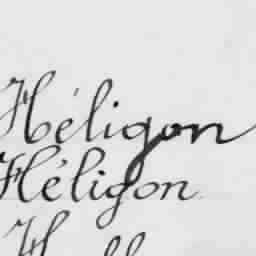 Héligon
Héligon